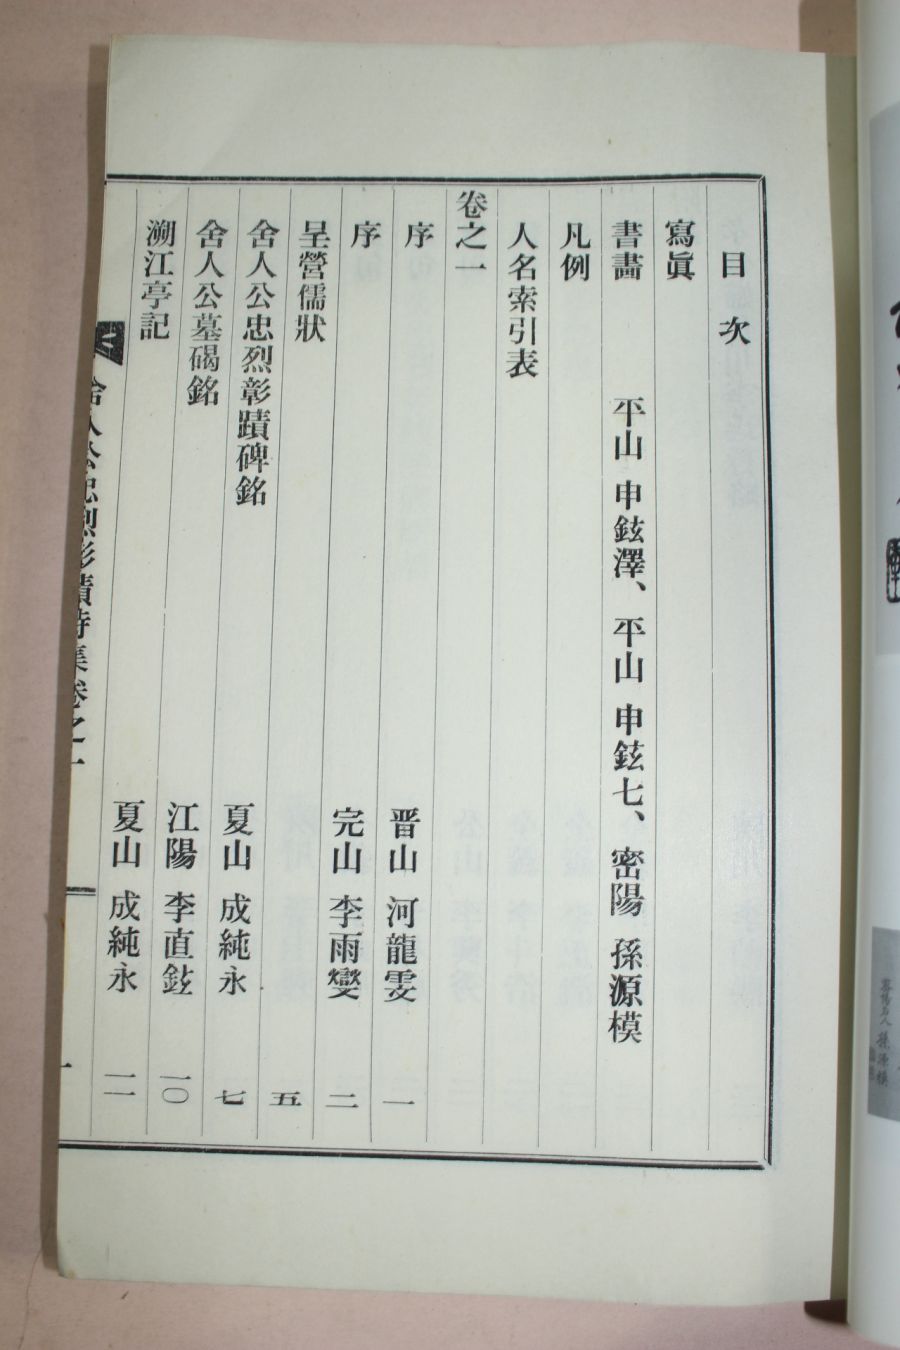 目次
寫眞
書畵 平山 申鉉澤、平山 申鉉七、密陽 孫源模
凡例
人名索引表
卷之一
序 晋山 河龍雯 一
序 完山 李雨燮 二
呈營儒狀 五
舍人公忠烈彰蹟碑銘 夏山 成純永 七
舍人公墓碣銘 江陽 李直鉉 一〇
溯江亭記 夏山 成純永 一一
舍人公忠烈彰蹟詩集卷之一
一